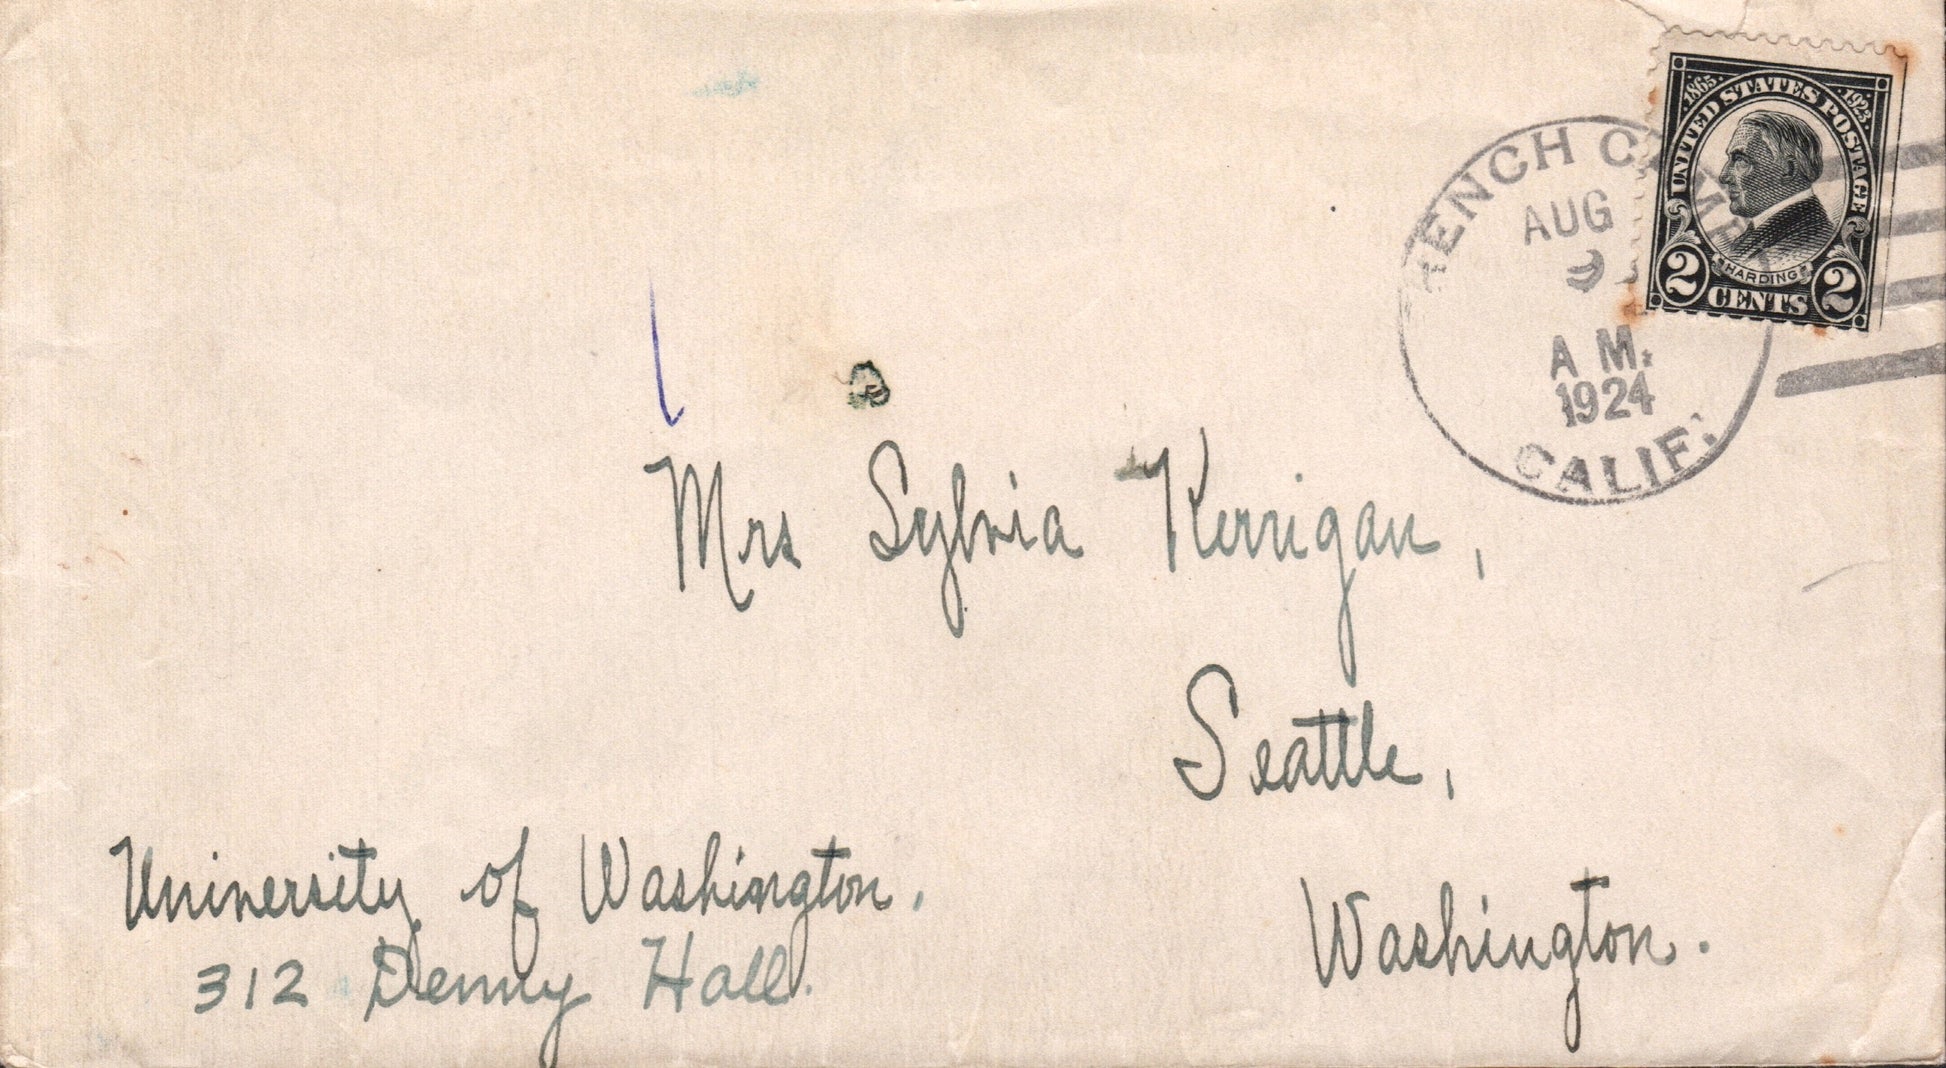 1865 1923
UNITED STATES POSTAGE
HARDING
2 CENTS 2
FRENCH CAMP
AUG
A M.
1924
CALIF.
Mrs Sylvia Kerrigan,
Seattle,
Washington.
University of Washington.
312 Denny Hall.